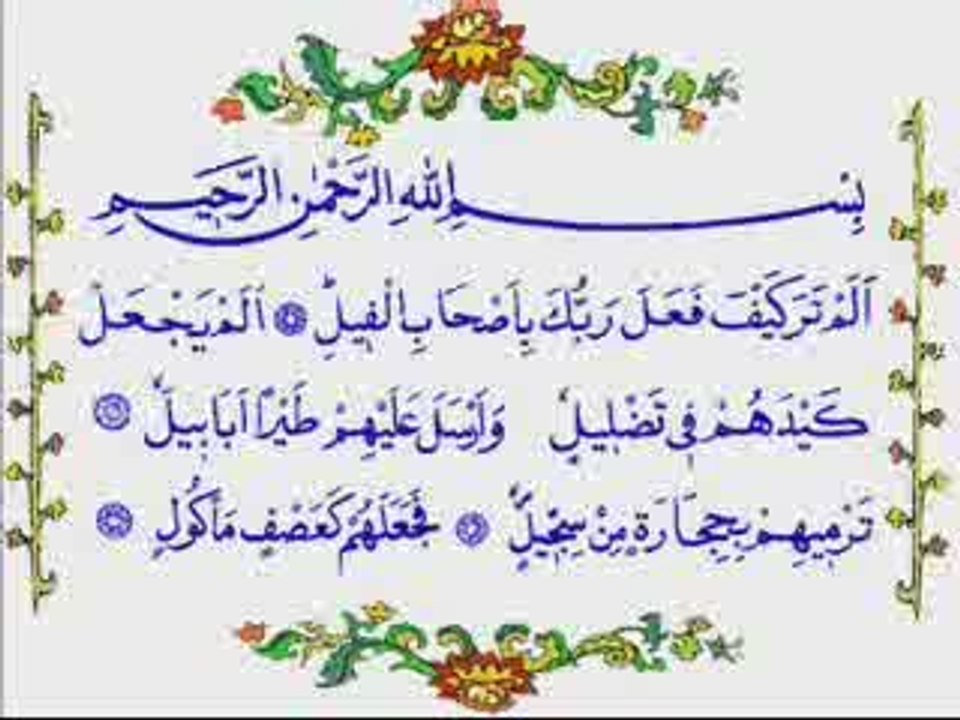 بِسْمِ اللهِ الرَّحْمٰنِ الرَّحِيمِ
اَلَمْ تَرَ كَيْفَ فَعَلَ رَبُّكَ بِاَصْحَابِ الْفِيلِ ۞ اَلَمْ يَجْعَلْ
كَيْدَهُمْ فِى تَضْلِيلٍ وَاَرْسَلَ عَلَيْهِمْ طَيْرًا اَبَابِيلَ ۞
تَرْمِيهِمْ بِحِجَارَةٍ مِنْ سِجِّيلٍ ۞ فَجَعَلَهُمْ كَعَصْفٍ مَأْكُولٍ ۞